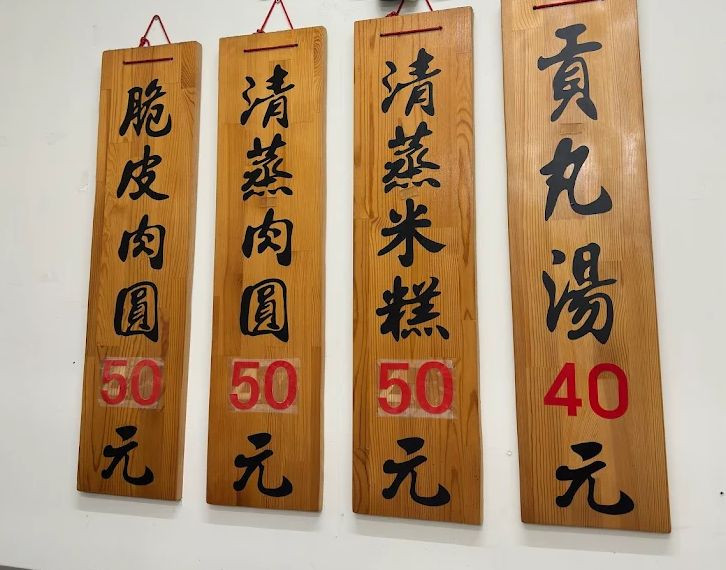 脆皮肉圓50元
清蒸肉圓50元
清蒸米糕50元
貢丸湯40元